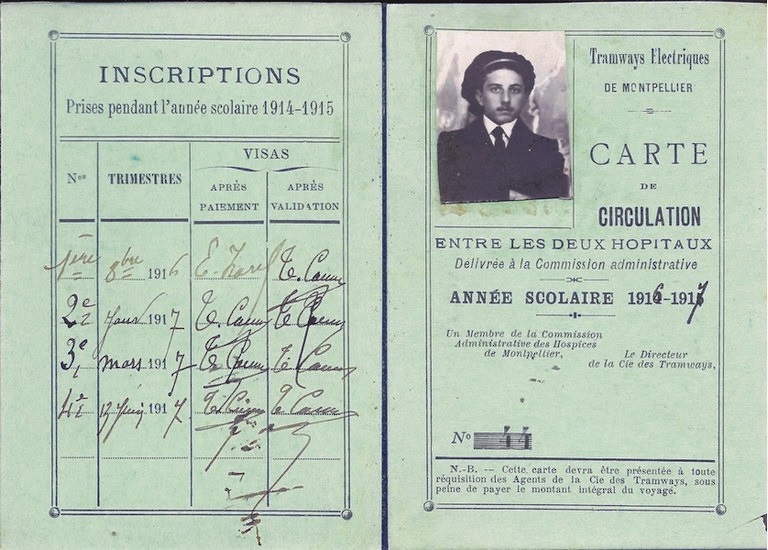 INSCRIPTIONS
Prises pendant l'année scolaire 1914-1915
Nos
TRIMESTRES
VISAS
APRÈS PAIEMENT
APRÈS VALIDATION
1ère 8bre 1916
2e 1917
3e mars 1917
4e 1917
Tramways Electriques
DE MONTPELLIER
CARTE
DE
CIRCULATION
ENTRE LES DEUX HOPITAUX
Délivrée à la Commission administrative
ANNÉE SCOLAIRE 1916-1917
Un Membre de la Commission
Administrative des Hospices
de Montpellier,
Le Directeur
de la Cie des Tramways,
No 44
N.-B. — Cette carte devra être présentée à toute
réquisition des Agents de la Cie des Tramways, sous
peine de payer le montant intégral du voyage.